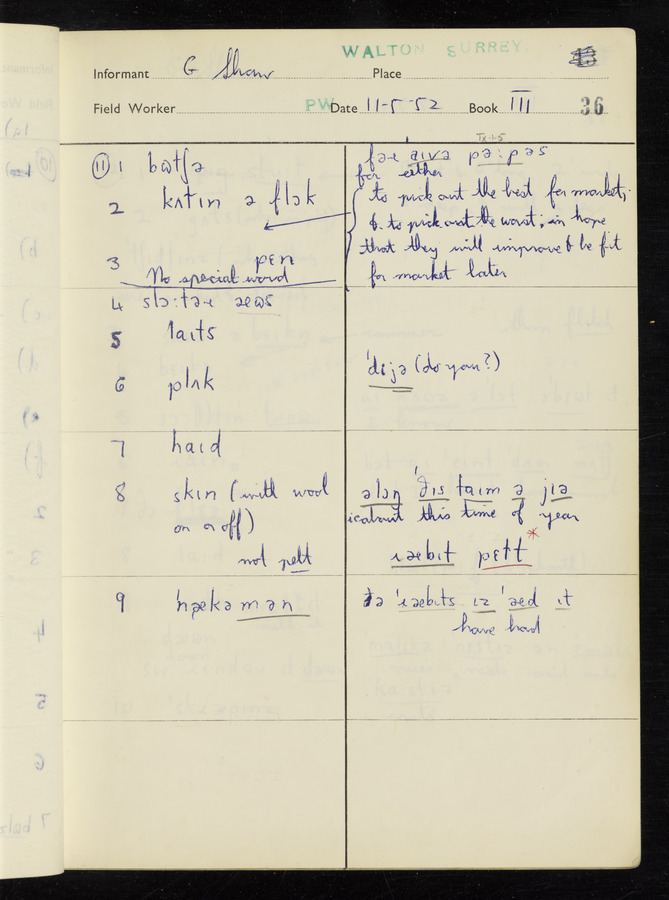 WALTON SURREY
Informant G Shaw Place
Field Worker PW Date 11-5-52 Book III 36
⑪ 1 bʊtʃə
2 kʌtɪn ə flɒk
3 pɛn
No special word
4 slɔ:tər
5 laɪts
6 plʌk
7 haɪd
8 skɪn (with wool
on or off)
not pelt
9 'nækəmən
pə:pəs
for either
to pick out the best for market;
& to pick out the worst; in hope
that they will improve & be fit
for market later
'dɪjə (do you?)
əlɒŋ 'ðɪs taɪm ə jɪə
ie about this time of year
ræbɪt pɛlt *
'ræbɪts ɪz 'æd ɪt
have had